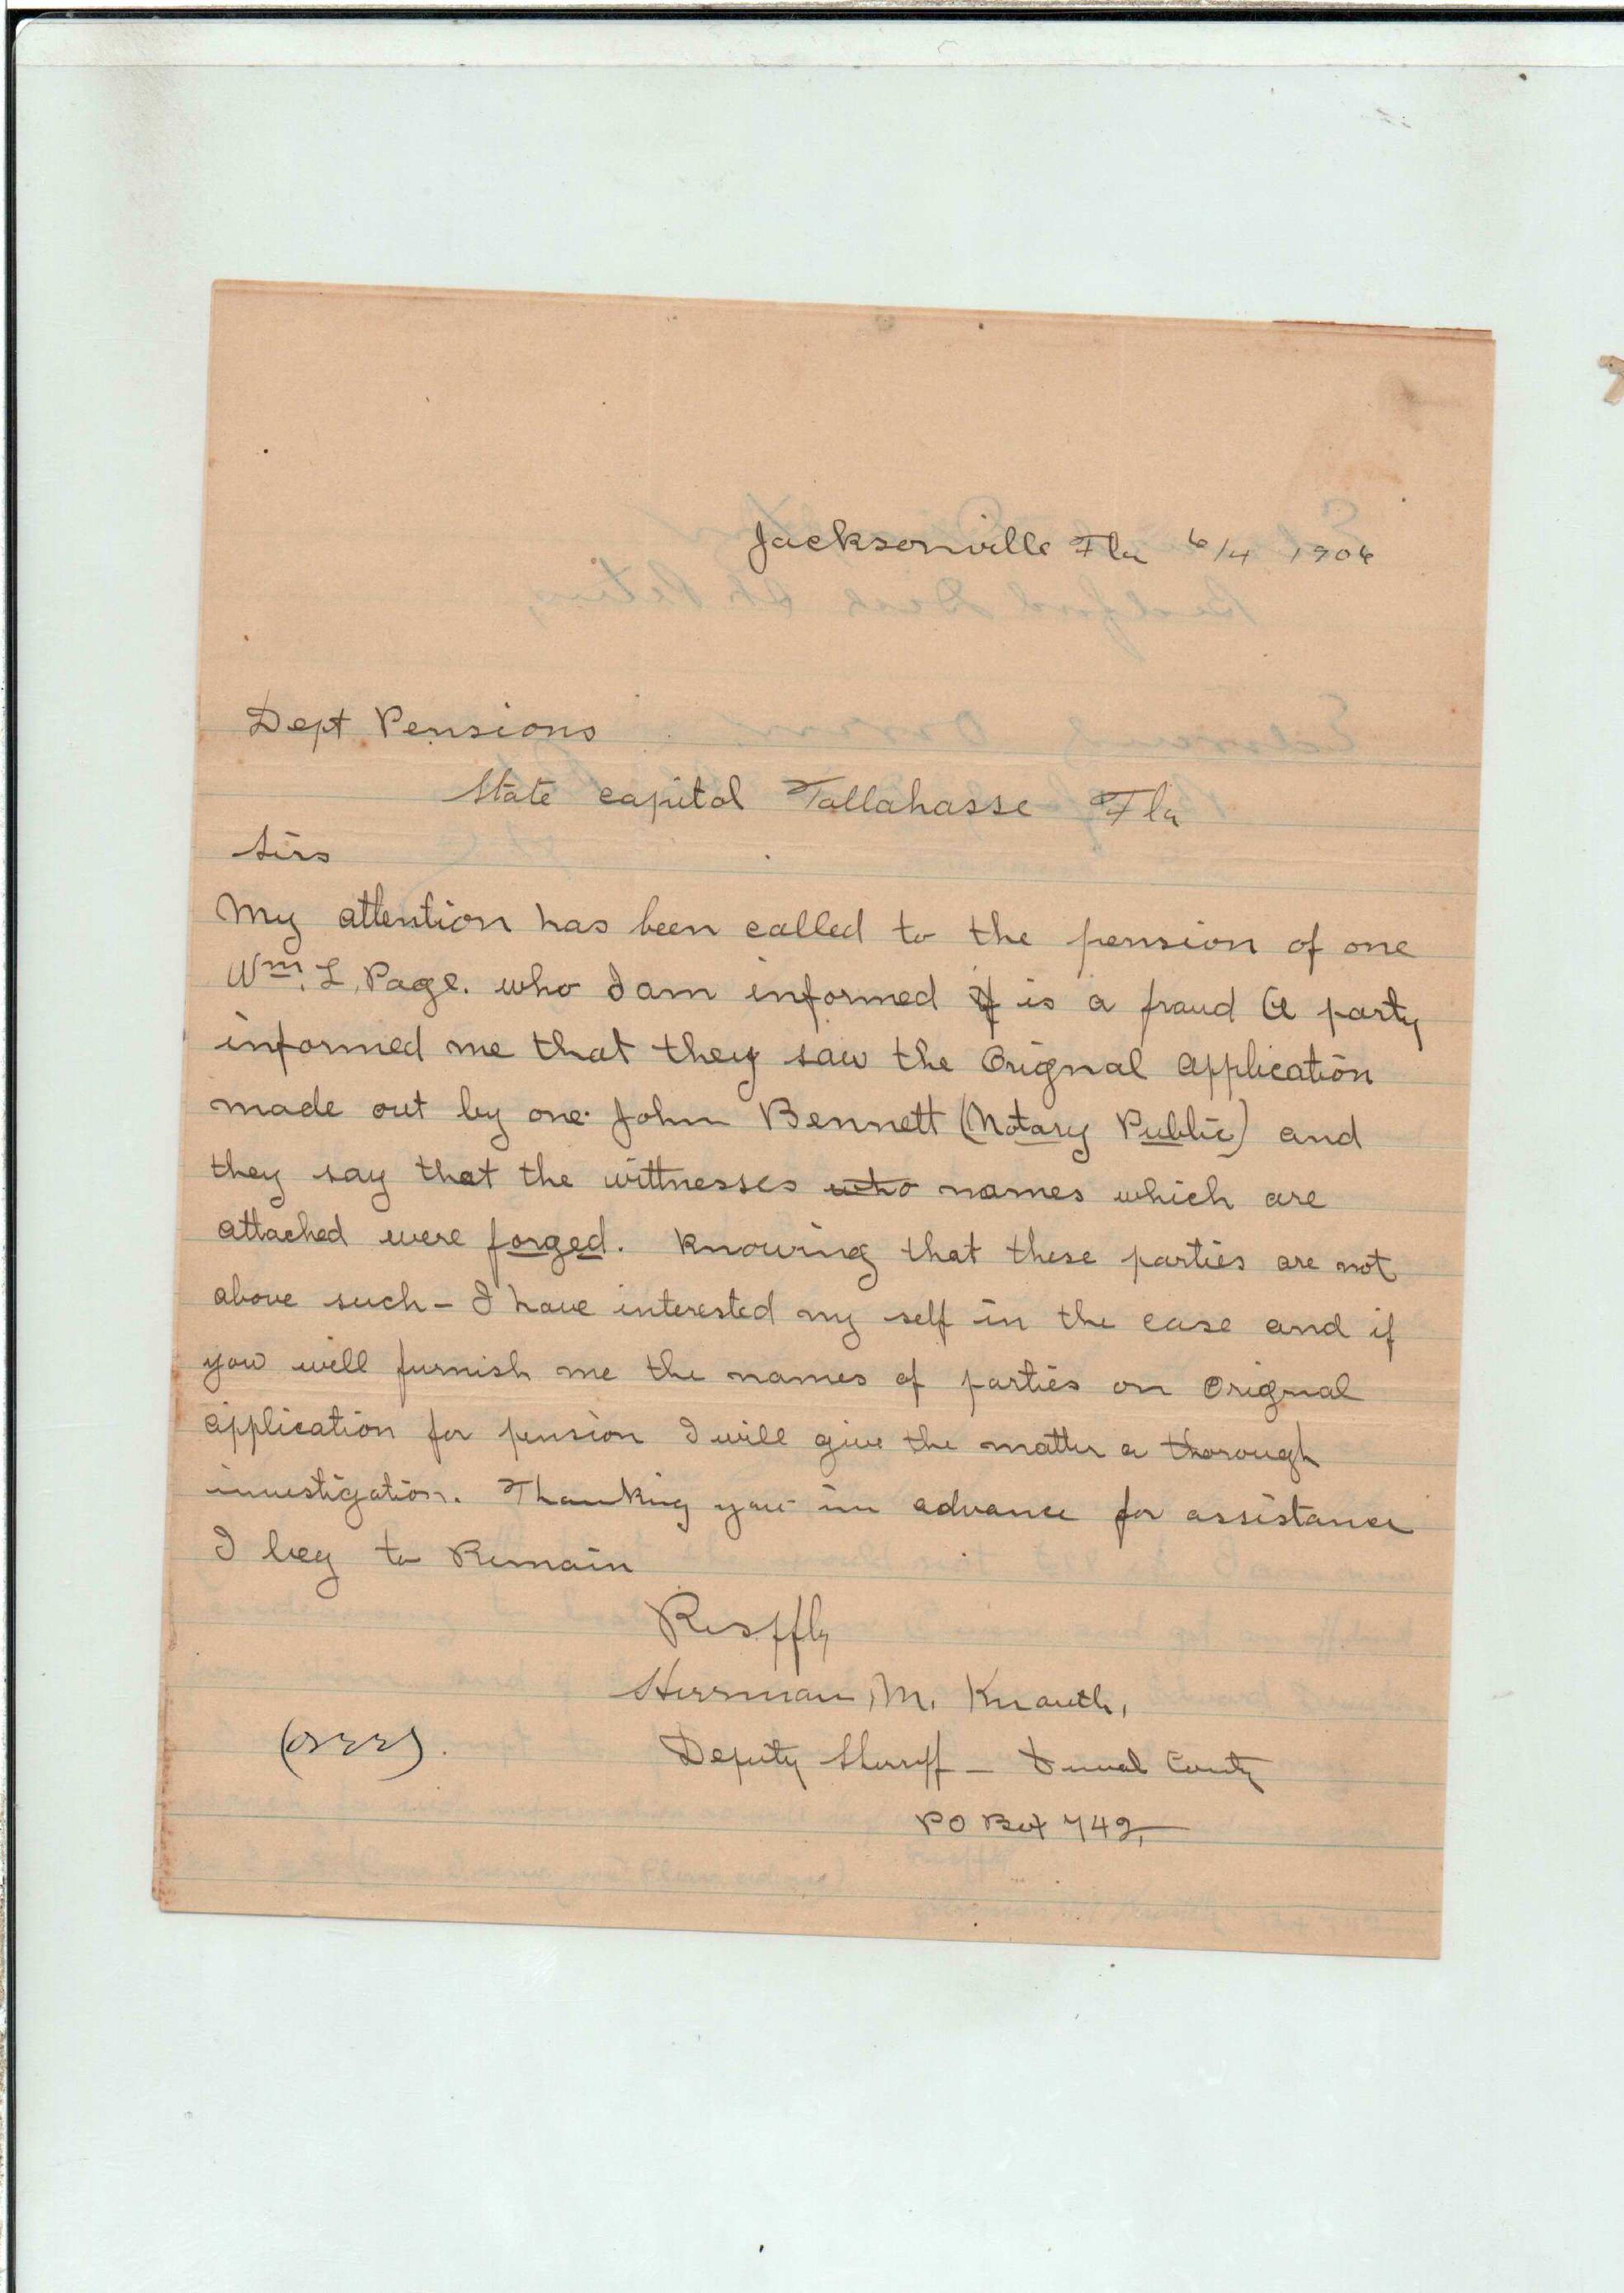 Jacksonville Fla 6/4 1906
Dept Pensions
State capitol Tallahasse Fla
Sirs
My attention has been called to the pension of one
Wm. L. Page. who I am informed if is a fraud A party
informed me that they saw the Orignal application
made out by one John Bennett (Notary Public) and
they say that the wittnesses who names which are
attached were forged. Knowing that these parties are not
above such - I have interested my self in the case and if
you will furnish me the names of parties on Orignal
application for pension I will give the matter a thorough
investigation. Thanking you in advance for assistance
I beg to Remain
Resptfly
Herrman, M. Knauth,
(over).
Deputy Sheriff - Duval County
PO Box 742,